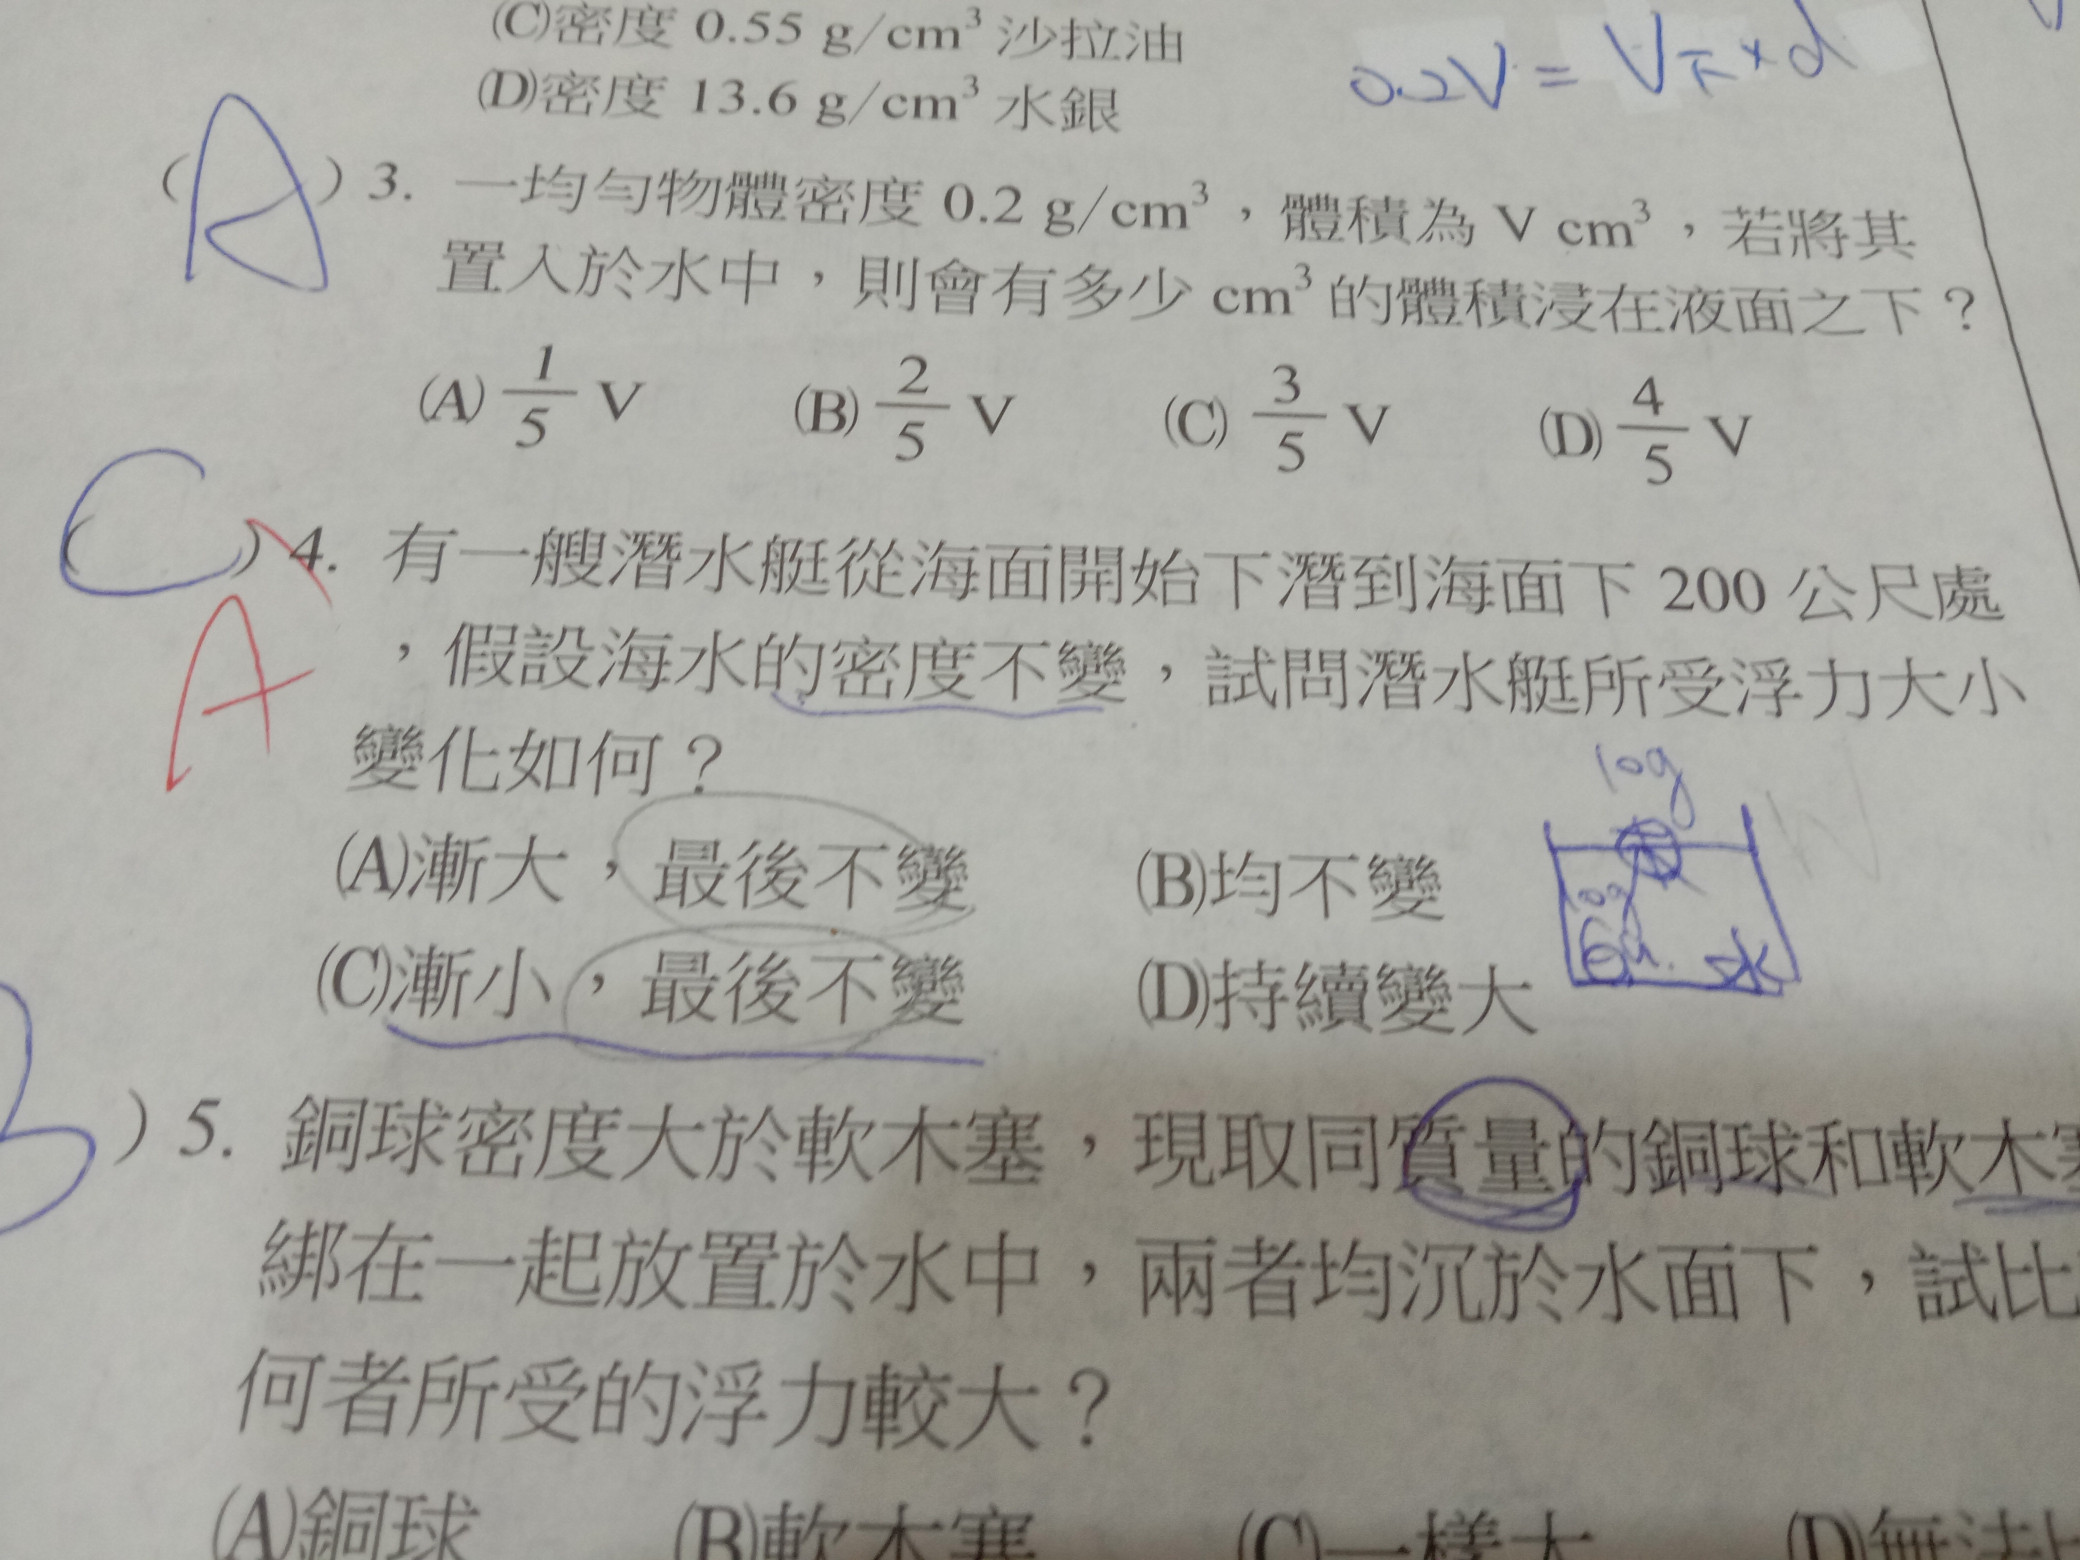 (C)密度 0.55 g/cm³ 沙拉油
(D)密度 13.6 g/cm³ 水銀
0.2V = V下 × d
(A) 3. 一均勻物體密度 0.2 g/cm³，體積為 V cm³，若將其
置入於水中，則會有多少 cm³ 的體積浸在液面之下？
(A) 1/5 V (B) 2/5 V (C) 3/5 V (D) 4/5 V
(C) 4. 有一艘潛水艇從海面開始下潛到海面下 200 公尺處
A
，假設海水的密度不變，試問潛水艇所受浮力大小
變化如何？
10g
(A)漸大，最後不變 (B)均不變
(C)漸小，最後不變 (D)持續變大
水
B ) 5. 銅球密度大於軟木塞，現取同質量的銅球和軟木塞
綁在一起放置於水中，兩者均沉於水面下，試比
何者所受的浮力較大？
(A)銅球 (B)軟木塞 (C)一樣大 (D)無法